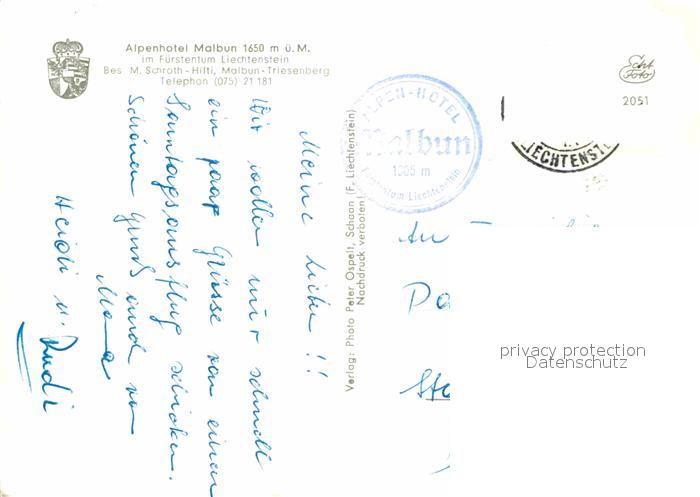 Alpenhotel Malbun 1650 m ü. M.
im Fürstentum Liechtenstein
Bes M. Schroth-Hilti, Malbun-Triesenberg
Telephon (075) 21 181
Meine Lieben!!
Wir wollen nur schnell
ein paar Grüsse von einem
Sonntagsausflug schicken.
Schönen Gruß auch von
Mama
Heidi u. Rudi
Verlag: Photo Peter Ospelt, Schaan (F. Liechtenstein)
Nachdruck verboten!
ALPEN-HOTEL
Malbun
m
Fürstentum Liechtenstein
Echt
Foto
2051
LIECHTENST
An
Pa
privacy protection
Datenschutz